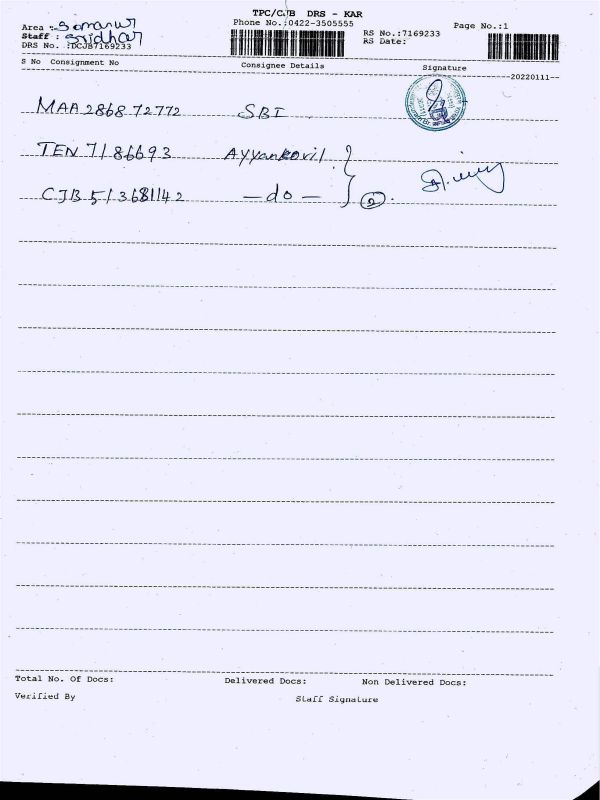 TPC/CJB DRS - KAR
Phone No.:0422-3505555
Page No.:1
Area : Somanur
Staff : Sridhar
DRS No. :DCJB7169233
RS No.:7169233
RS Date:
S No Consignment No Consignee Details Signature
20220111
MAA 286872772 SBI
TEN 7186693 Ayyankovil
CJB 513681142 - do - 2
Total No. Of Docs: Delivered Docs: Non Delivered Docs:
Verified By Staff Signature